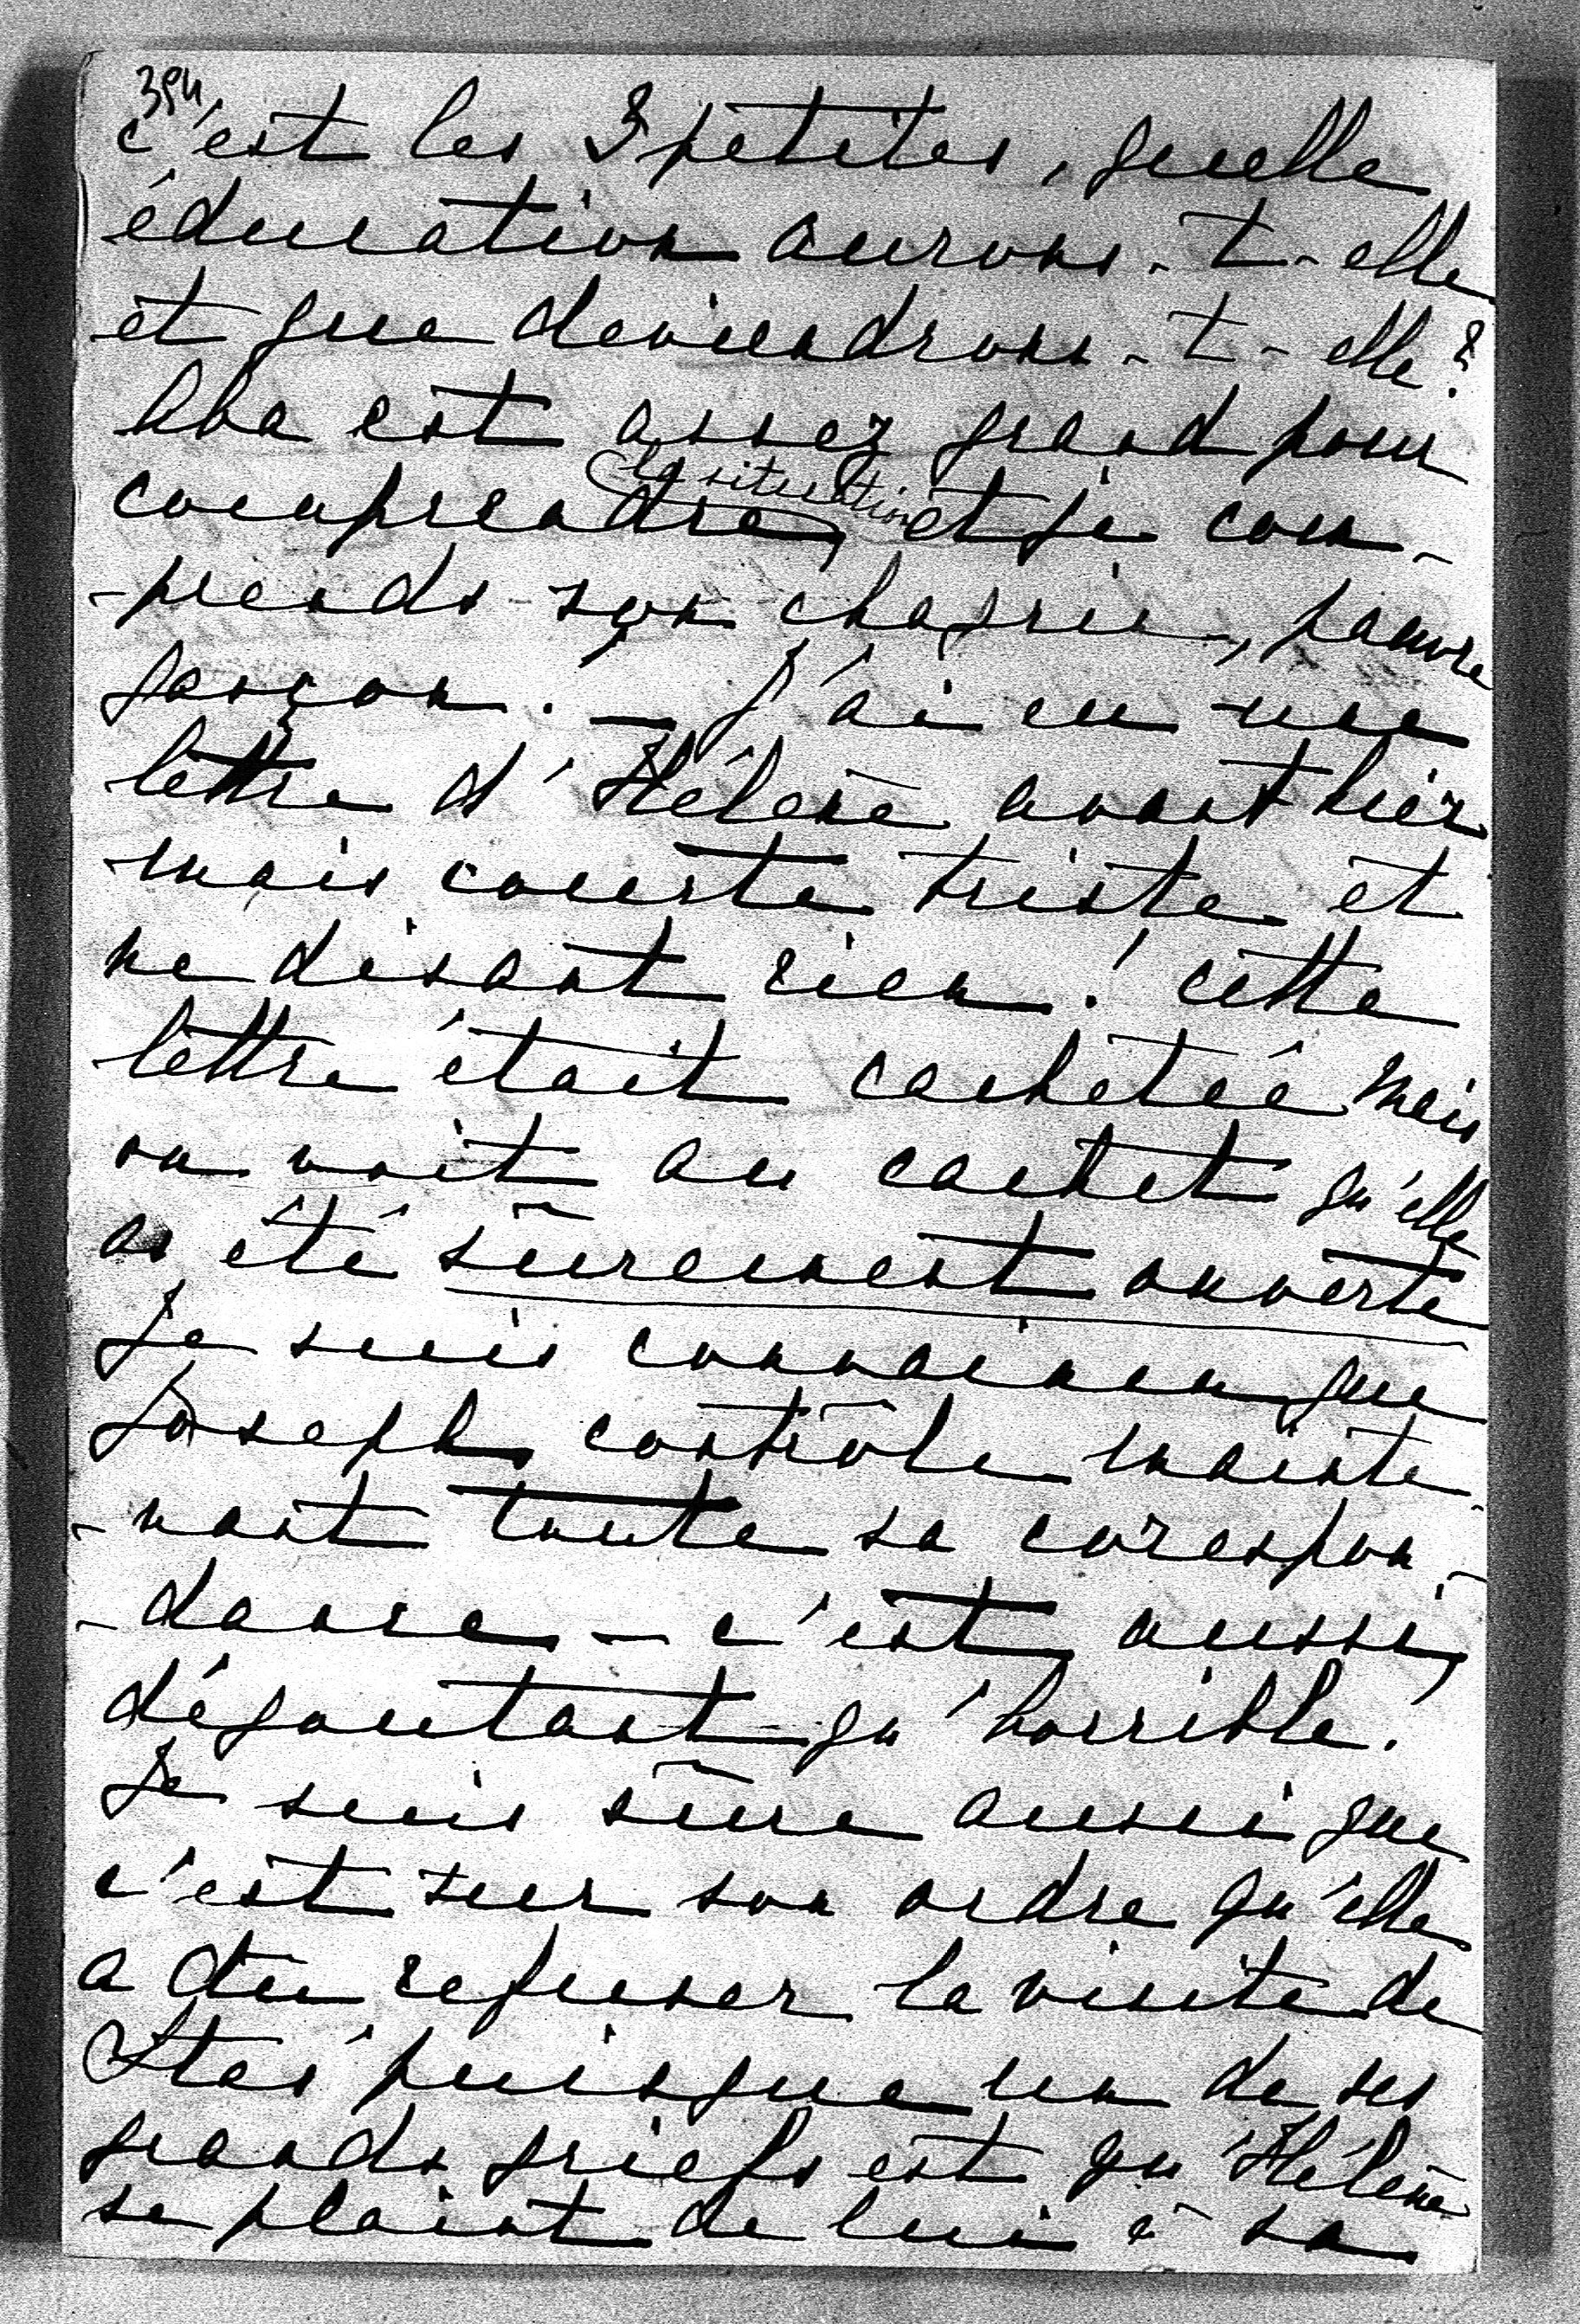 394,
c'est les 3 petites, quelle
éducation aurons-t-elle
et que deviendrons-t-elle?
Aba est assez grand pour
comprendre, la situation et je com-
-prends son chagrin, pauvre
garçon. — J'ai eu une
lettre d'Hélène avant hier
mais courte triste et
ne disant rien! cette
lettre était cachetée mais
on voit au cachet qu'elle
a été sûrement ouverte
Je suis convaincu que
Joseph contrôle mainte-
-nant toute sa corespon-
-dance — c'est aussi
dégoutant qu'horrible!
Je suis sûre aussi que
c'est sur son ordre qu'elle
a du refuser la visite de
Stas' puisque un de ses
grands griefs est qu'Hélène
se plaint de lui à sa